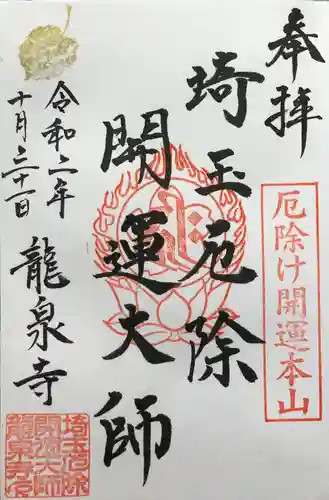 奉拝
厄除け開運本山
埼玉厄除
開運大師
令和二年
十月三十一日
龍泉寺
埼玉厄除
開運大師
龍泉寺印